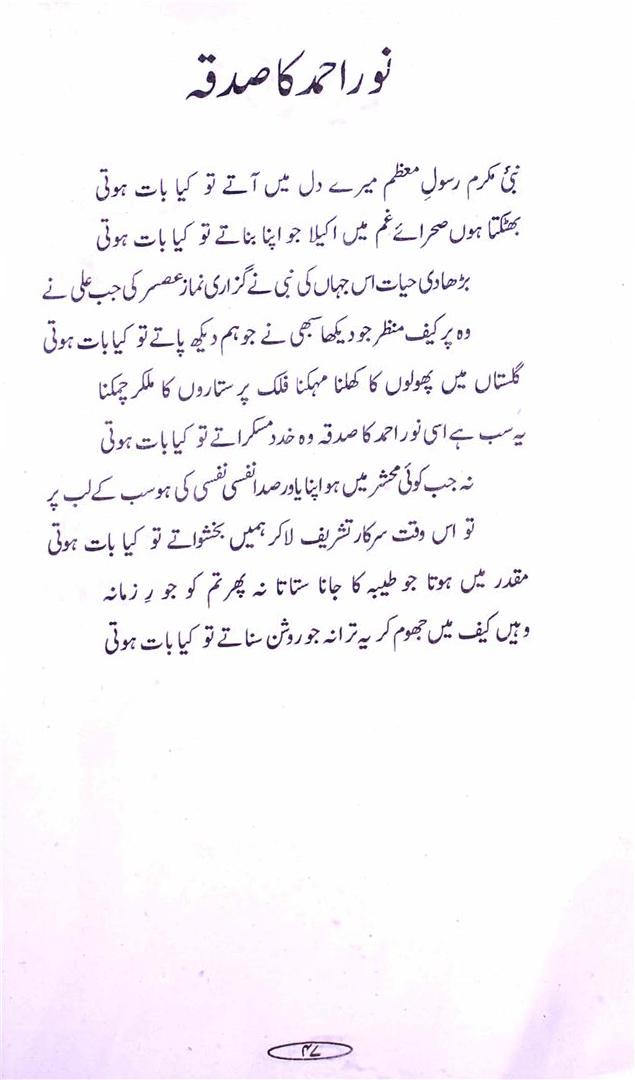 نور احمد کا صدقہ
نبیٔ مکرم رسولِ معظم میرے دل میں آتے تو کیا بات ہوتی
بھٹکتا ہوں صحرائے غم میں اکیلا جو اپنا بناتے تو کیا بات ہوتی
بڑھا دی حیات اس جہاں کی نبی نے گزاری نماز عصر کی جب علی نے
وہ پر کیف منظر جو دیکھا سبھی نے جو ہم دیکھ پاتے تو کیا بات ہوتی
گلستاں میں پھولوں کا کھلنا مہکنا فلک پر ستاروں کا ملکر چمکنا
یہ سب ہے اسی نور احمد کا صدقہ وہ خدد مسکراتے تو کیا بات ہوتی
نہ جب کوئی محشر میں ہو اپنا یاور صدا نفسی نفسی کی ہو سب کے لب پر
تو اس وقت سرکار تشریف لاکر ہمیں بخشواتے تو کیا بات ہوتی
مقدر میں ہوتا جو طیبہ کا جانا ستاتا نہ پھر تم کو جو رِ زمانہ
وہیں کیف میں جھوم کر یہ ترانہ جو روشن سناتے تو کیا بات ہوتی
۴۷